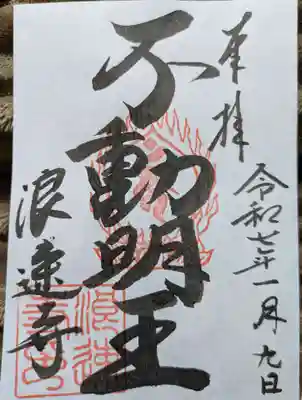 奉拝
令和七年一月九日
不動明王
浪速寺